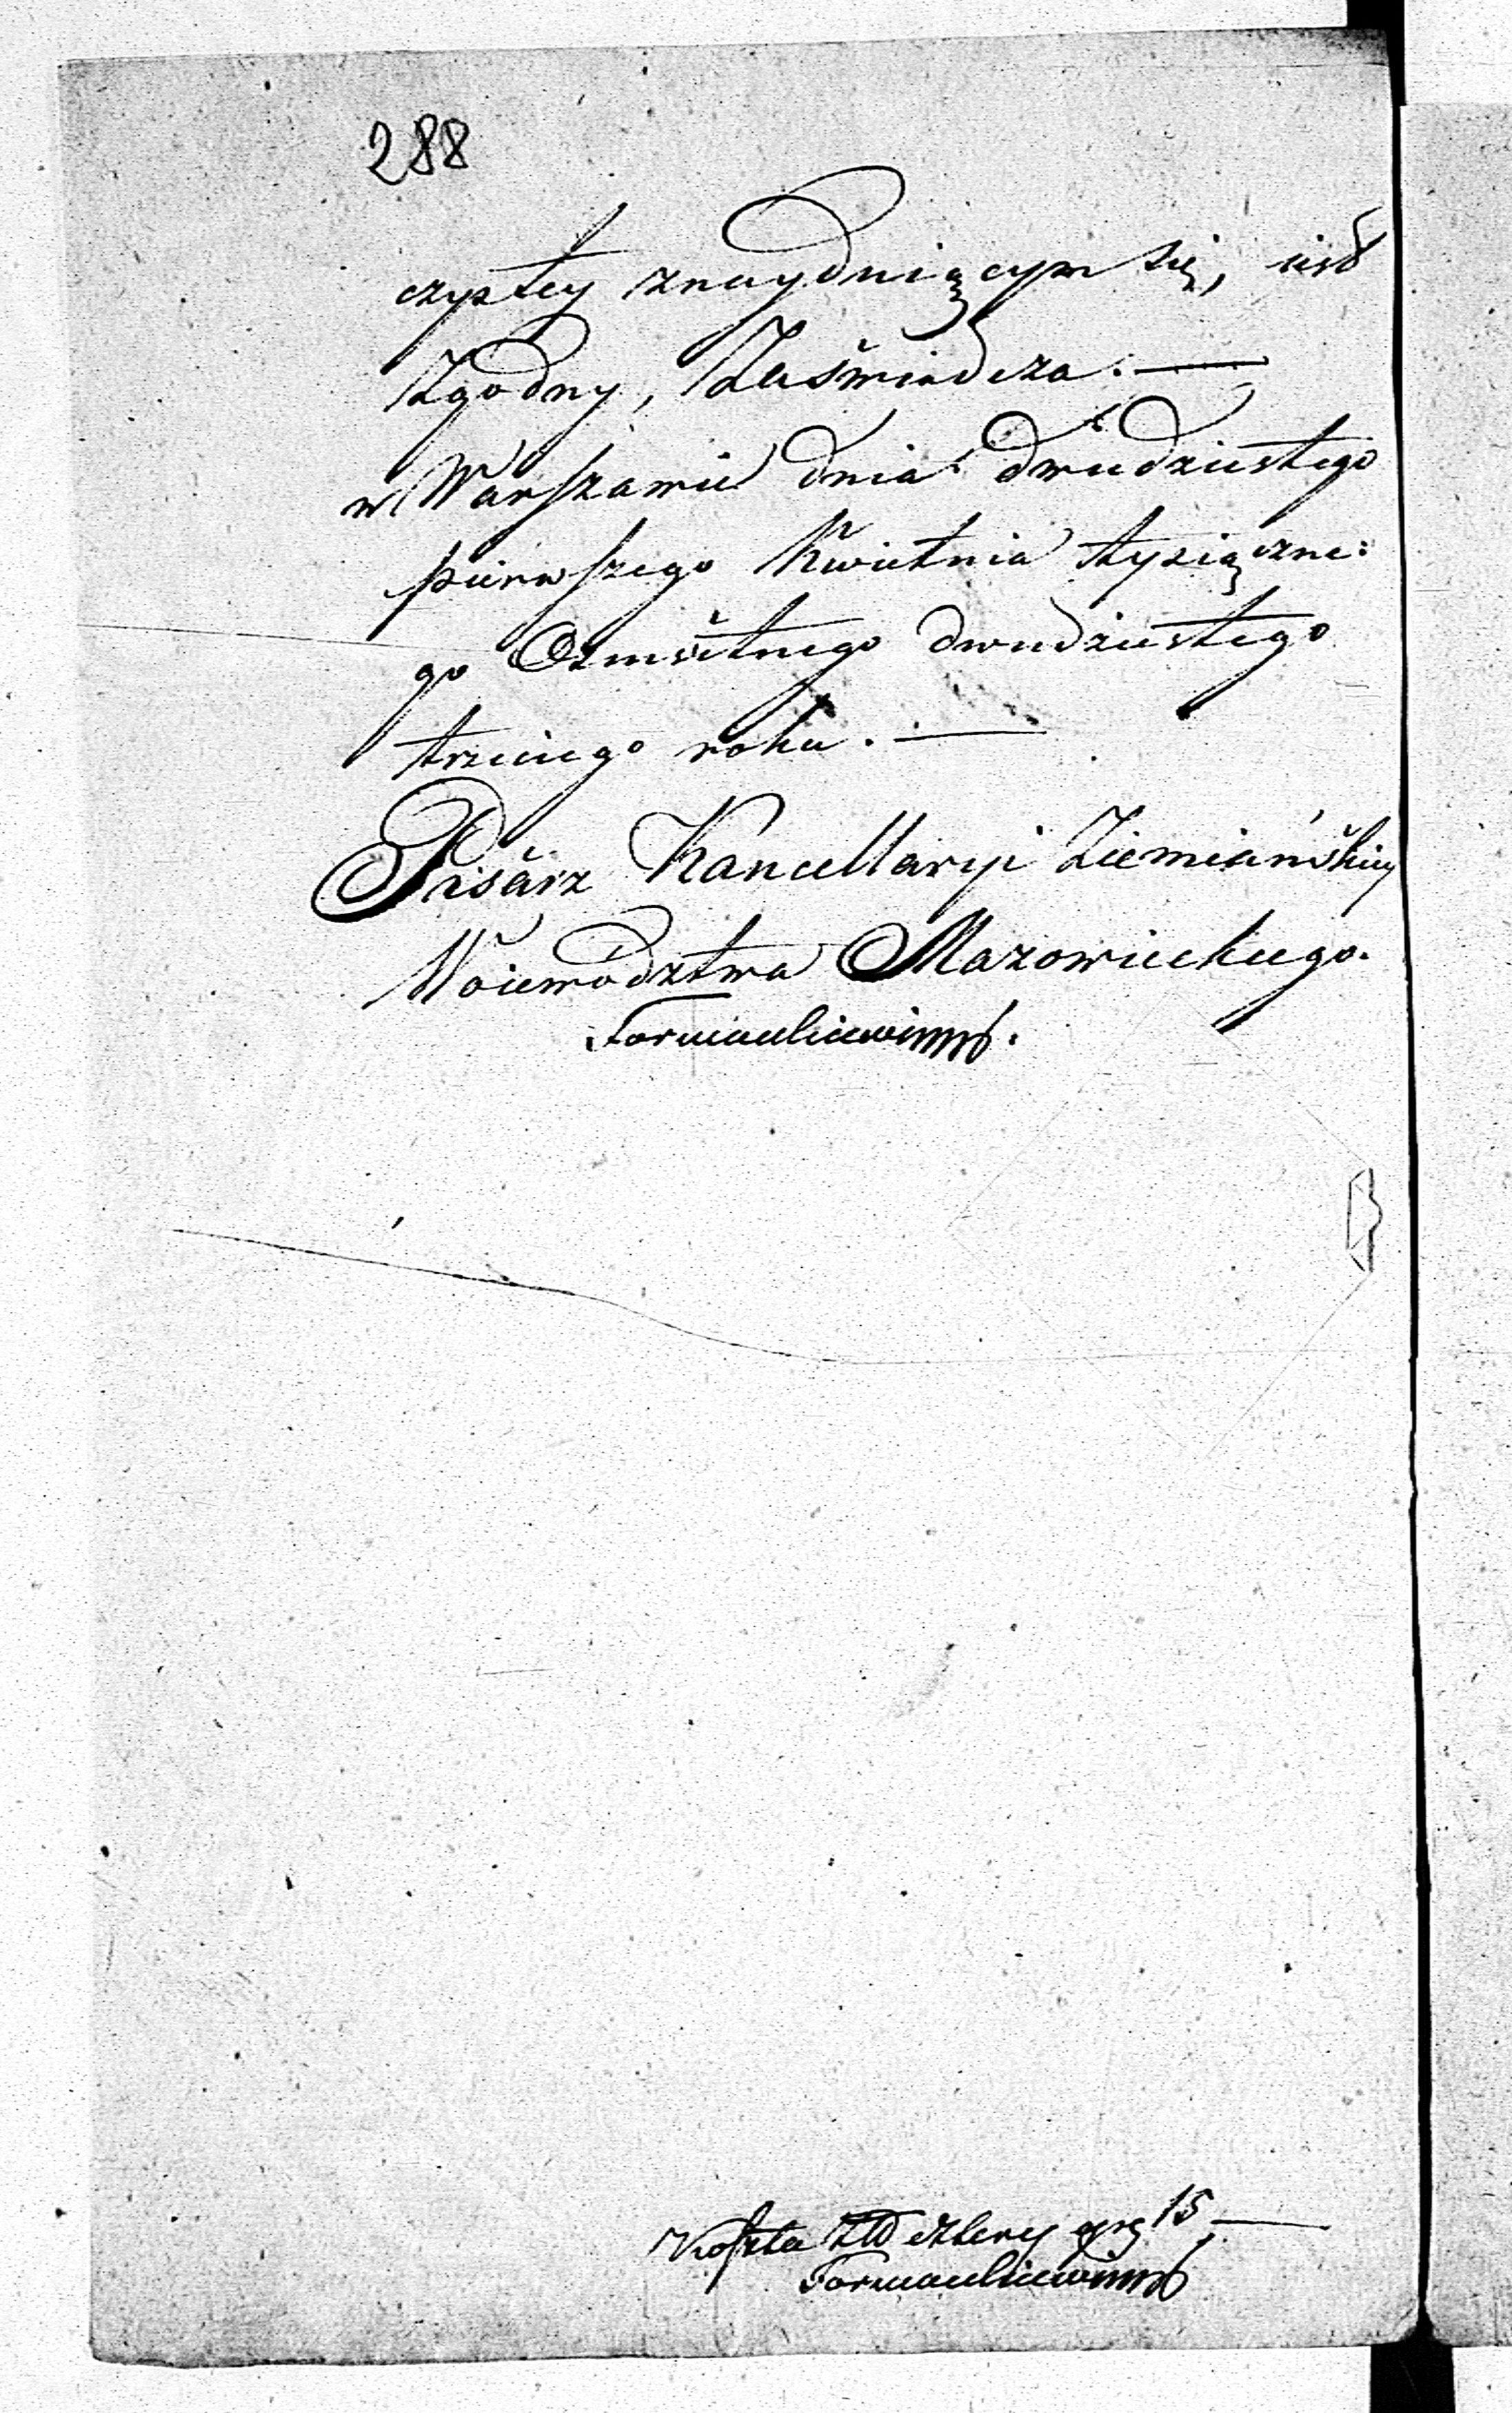 288
czystey znayduiącym się, iest
Zgodny, Zaświadcza. —
w Warszawie dnia dwudziestego
pierwszego Kwietnia tysiączne:
go Osmsetnego dwudziestego
trzeciego roku. —
Pisarz Kancellaryi Ziemiańskiey
Woiewództwa Mazowieckiego.
Koszta Złł cztery gr 15 —